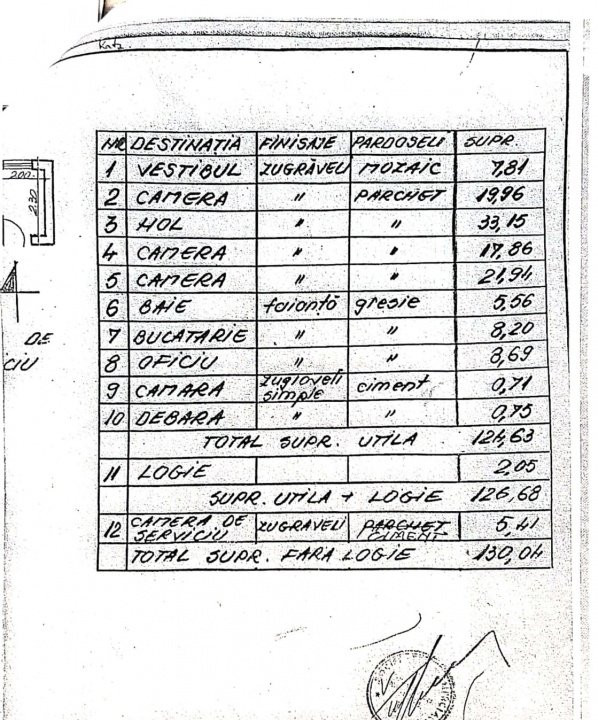 Katz.
NR DESTINATIA FINISAJE PARDOSELI SUPR.
1 VESTIBUL ZUGRĂVELI MOZAIC 7,81
2 CAMERA " PARCHET 19,96
3 HOL " " 33,15
4 CAMERA " " 17,86
5 CAMERA " " 21,94
6 BAIE faianță gresie 5,56
7 BUCATARIE " " 8,20
8 OFICIU " " 8,69
9 CAMARA zugraveli simple ciment 0,71
10 DEBARA " " 0,75
TOTAL SUPR. UTILA 124,63
11 LOGIE 2,05
SUPR. UTILA + LOGIE 126,68
12 CAMERA DE SERVICIU ZUGRAVELI PARCHET CIMENT 5,41
TOTAL SUPR. FARA LOGIE 130,04
200
230
DE
CIU